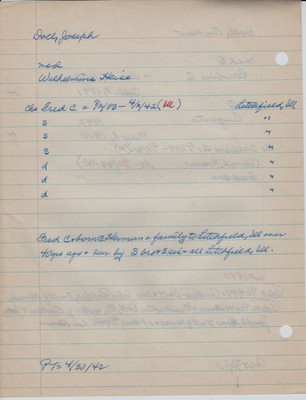 Doely, Joseph
mar
Wilhelmina Heise
ch= Fred C = 9/2/83 - 4/2/42 (Ill) Litchfield, Ill
s "
s "
s "
d "
d "
d
Fred C & Herman & family to Litchfield, Ill over
40 yrs ago & sur by 3 bro & 3 sis = all Litchfield, Ill.
PT = 4/20/42